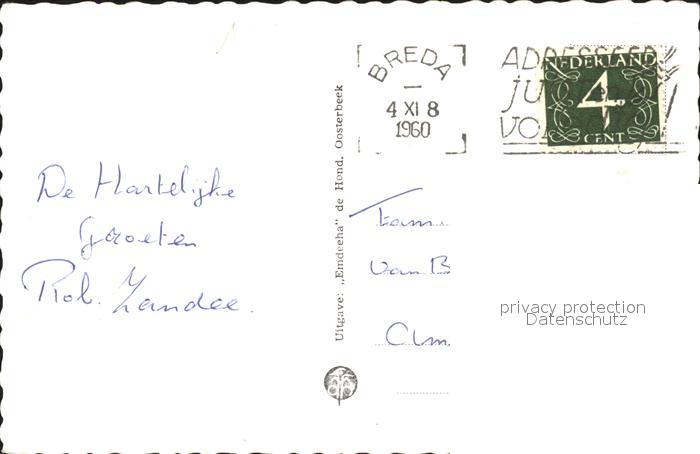 De Hartelijke
Groeten
Rob. Zandee.
Uitgave: „Emdeeha" de Hond, Oosterbeek
BREDA
4 XI 8
1960
NEDERLAND
4
CENT
Fam.
van B
Am.
privacy protection
Datenschutz